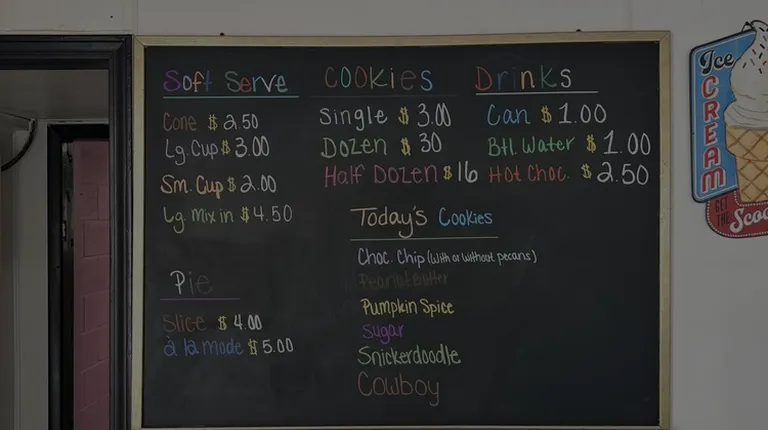 Soft Serve
Cone $2.50
Lg. Cup $3.00
Sm. Cup $2.00
Lg. Mix in $4.50
Pie
Slice $4.00
à la mode $5.00
COOKIES
Single $3.00
Dozen $30
Half Dozen $16
Drinks
Can $1.00
Btl. Water $1.00
Hot Choc. $2.50
Today's Cookies
Choc. Chip (with or without pecans)
Peanut Butter
Pumpkin Spice
Sugar
Snickerdoodle
Cowboy
Ice
CREAM
GET
THE